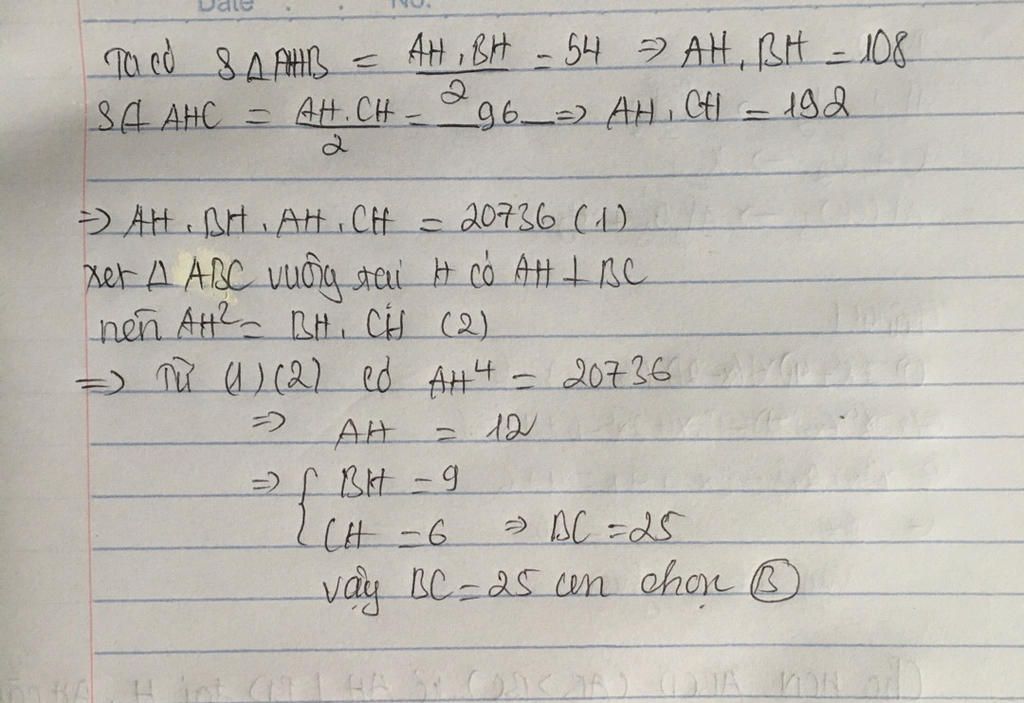 Date . . No.
Ta có S Δ AHB = AH . BH / 2 = 54 => AH . BH = 108
SΔ AHC = AH . CH / 2 = 96 => AH . CH = 192
=> AH . BH . AH . CH = 20736 (1)
xet Δ ABC vuông tại H có AH ⊥ BC
nên AH² = BH . CH (2)
=> Từ (1) (2) có AH⁴ = 20736
=> AH = 12
=> { BH = 9
CH = 6 => BC = 25
vậy BC = 25 cm chọn Ⓑ